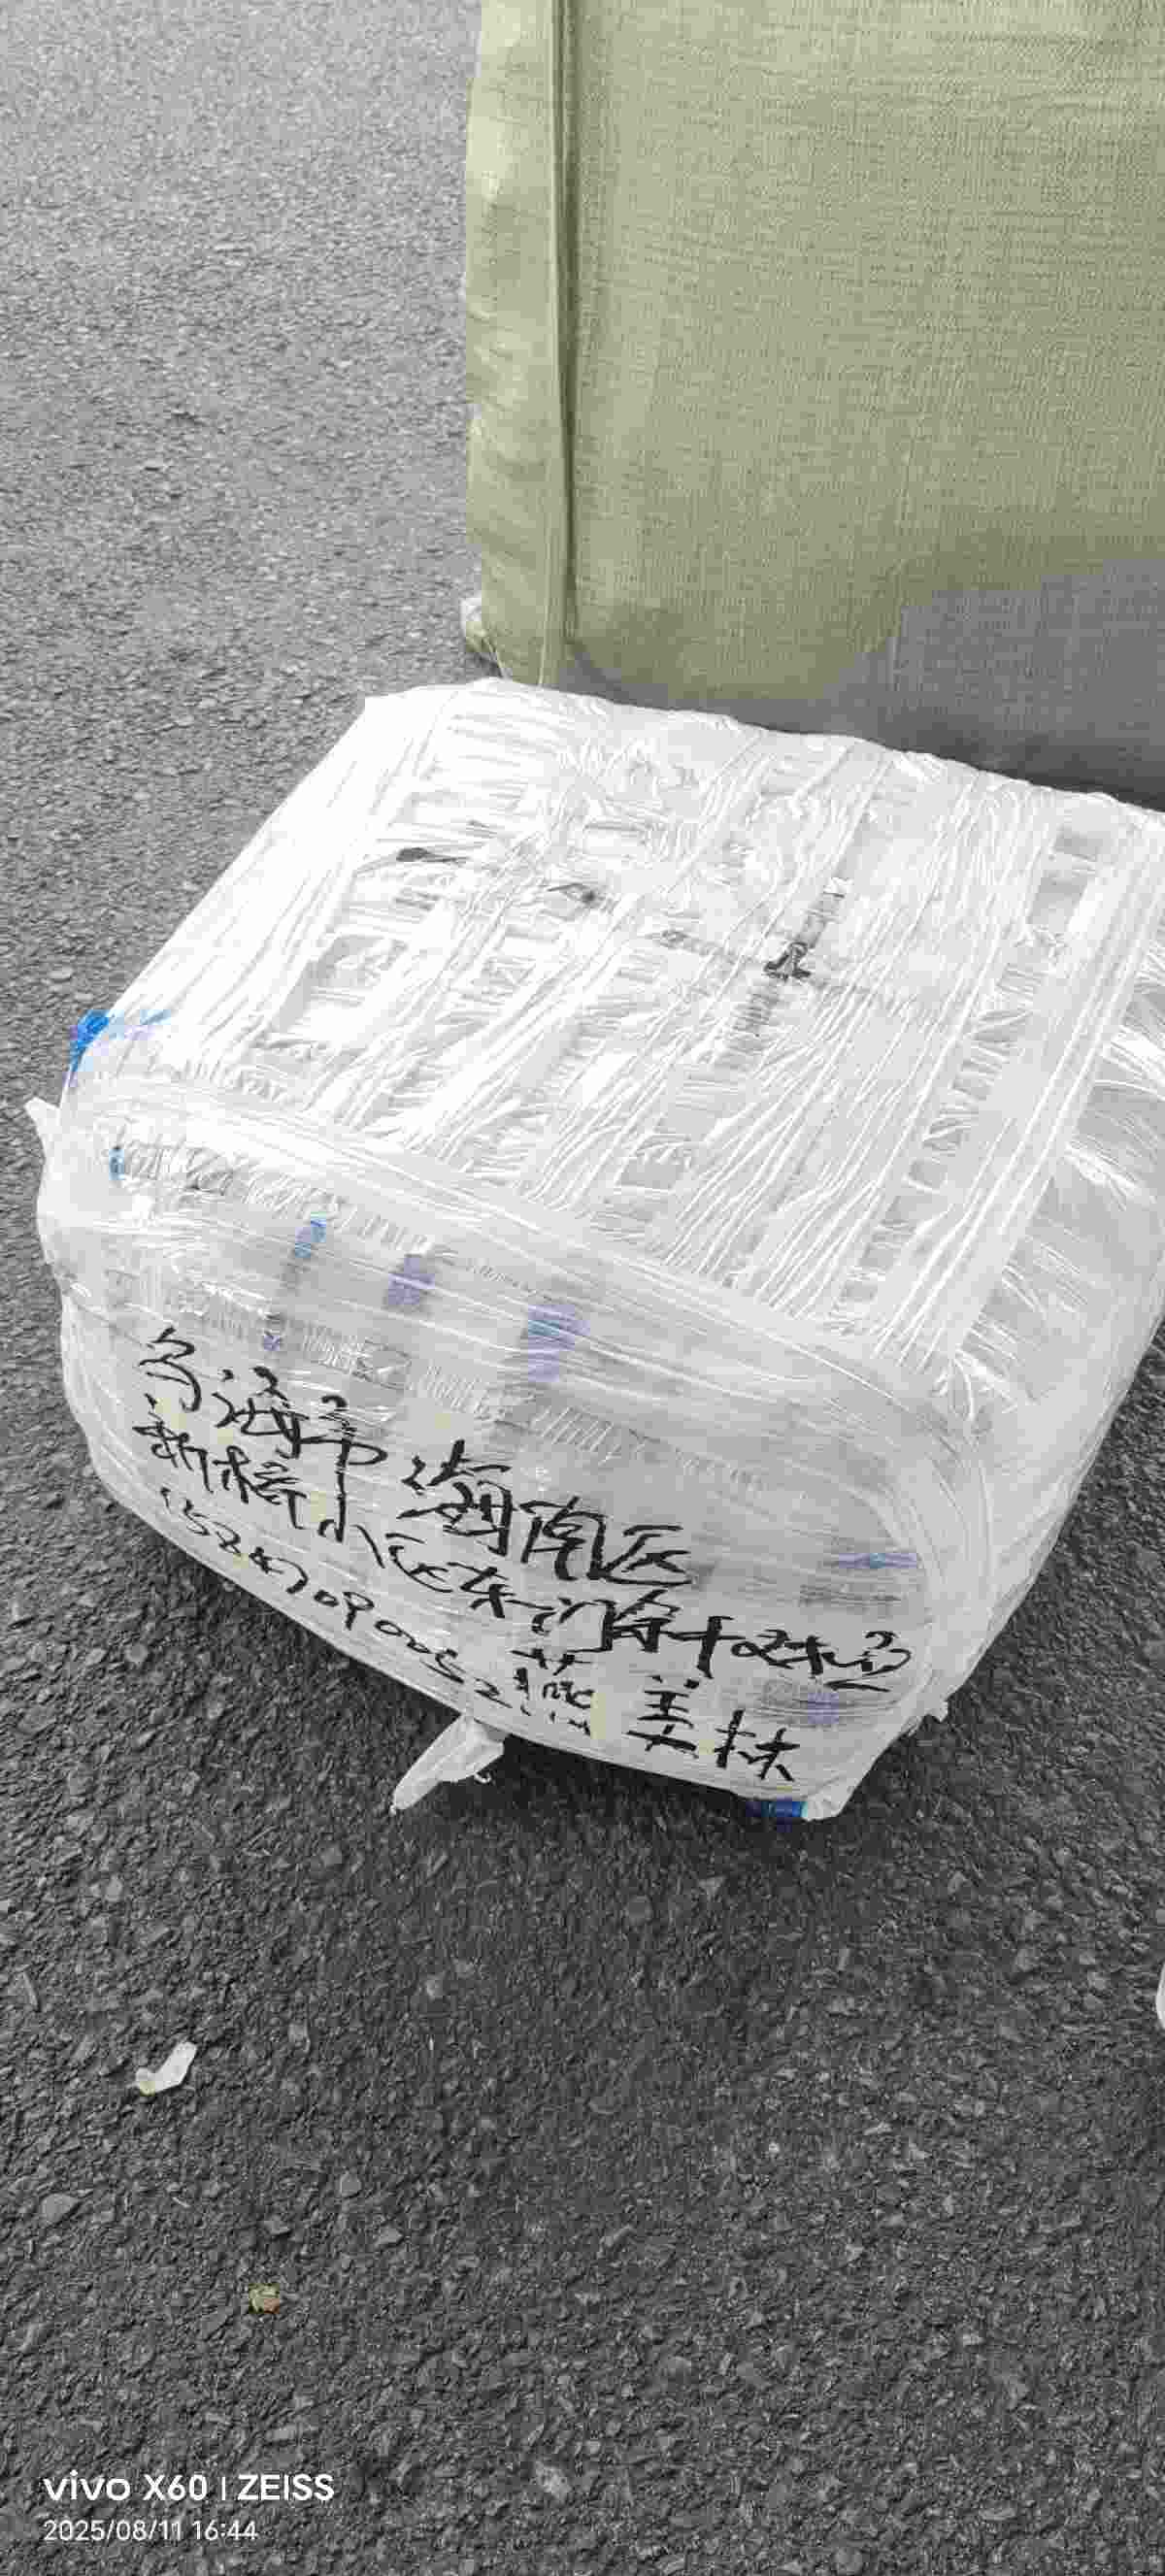 乌海市 海南区
新桥小区东门
15247090052 燕 美林
vivo X60 | ZEISS
2025/08/11 16:44